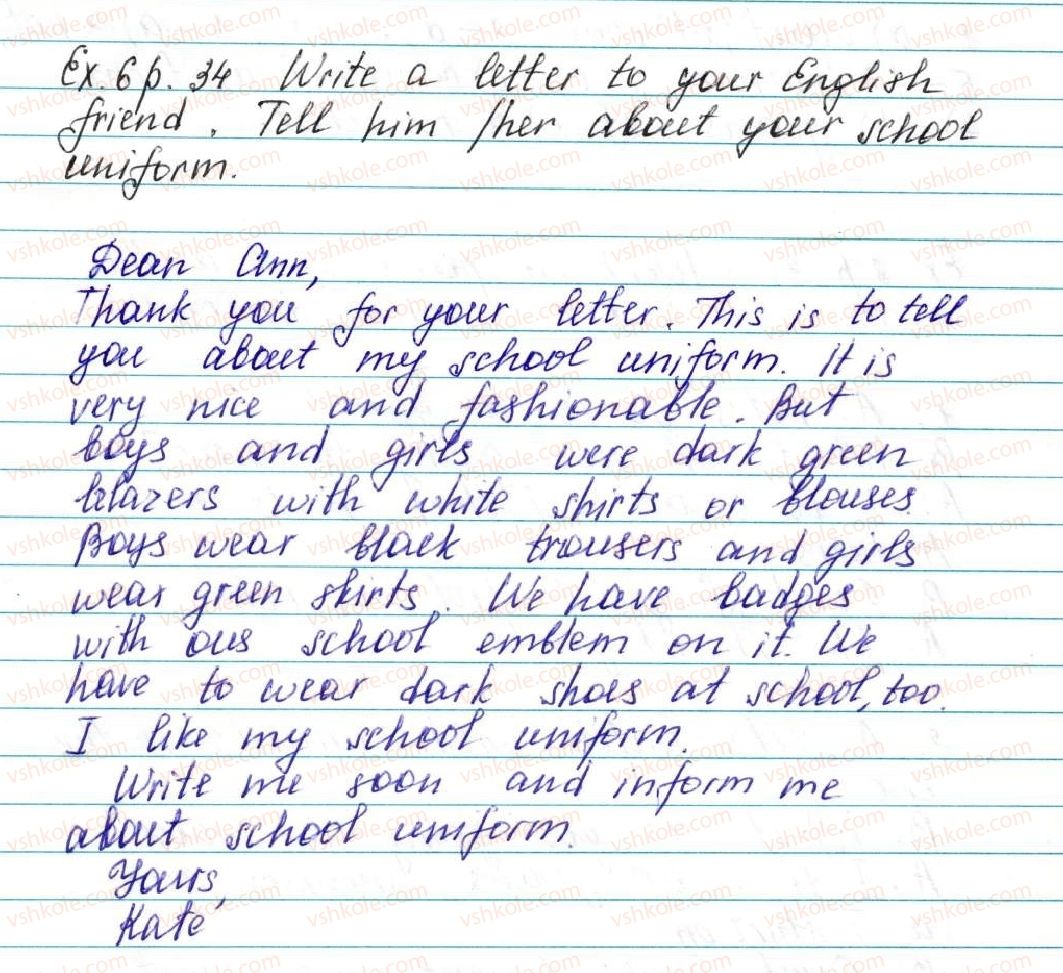 Ex. 6 p. 34 Write a letter to your English
friend. Tell him /her about your school
uniform.
Dear Ann,
Thank you for your letter. This is to tell
you about my school uniform. It is
very nice and fashionable. But
boys and girls were dark green
blazers with white shirts or blouses
Boys wear black trousers and girls
wear green skirts. We have badges
with ous school emblem on it. We
have to wear dark shoes at school, too.
I like my school uniform.
Write me soon and inform me
about school uniform.
Yours,
Kate